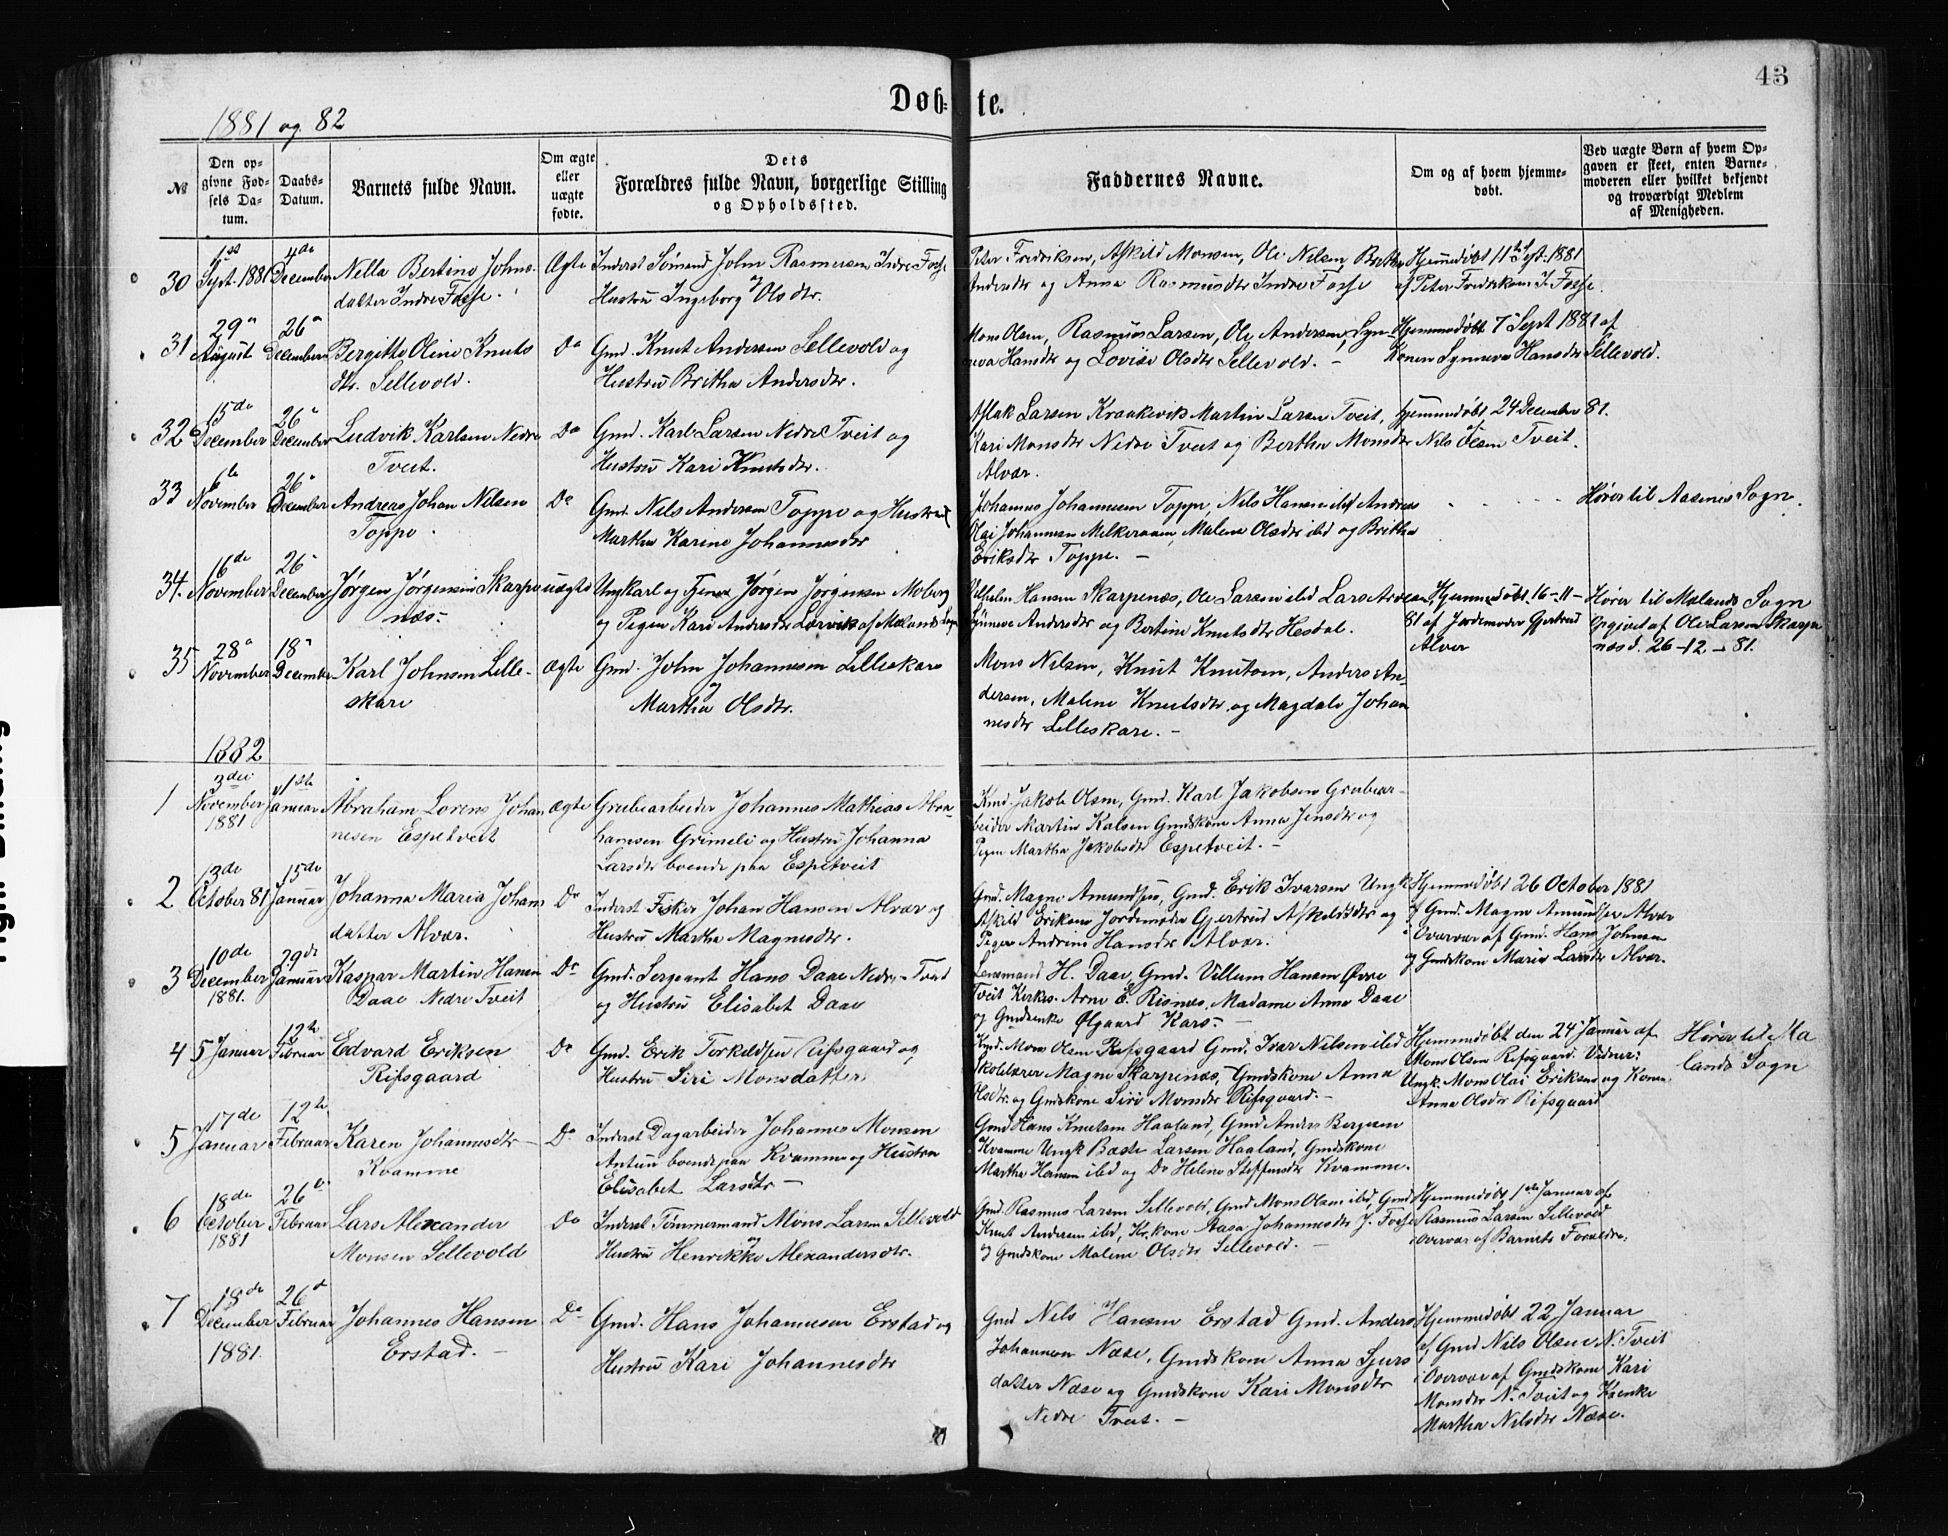 43
Døbte.
1881 og 82
№
Den opgivne Fødsels Datum.
Daabs-Datum.
Barnets fulde Navn.
Om ægte eller uægte fødte.
Dets Forældres fulde Navn, borgerlige Stilling og Opholdssted.
Faddernes Navne.
Om og af hvem hjemmedøbt.
Ved uægte Børn af hvem Opgaven er skeet, enten Barnemoderen eller hvilket bekjendt og troværdigt Medlem af Menigheden.
30
1ste Sept. 1881
4de December
Nella Bertine Johns-
datter Indre Fosse.
Ægte
Inderst Sømand John Rasmussen Indre Fosse
og
Hustru Ingeborg Olsdtr.
Peter Fredriksen, Askild Monsen, Ole Nilsen Britha
Andersdtr og Anna Rasmusdtr Indre Fosse
Hjemmedøbt 11te Sept. 1881
af Peter Fredriksen I. Fosse.
31
29de August
26de December
Bergitte Oline Knuts
dtr. Sellevold.
Do
Gmd. Knut Andersen Sellevold og
Hustru Britha Andersdtr.
Mons Olsen, Rasmus Larsen, Ole Andersen, Syn-
neva Hansdtr og Lovise Olsdtr Sellevold. –
Hjemmedøbt 7 Sept 1881 af
Konen Synneva Hansdtr Sellevold.
32
15de December
26de December
Ludvik Karlsen Nedre
Tveit.
Do
Gmd. Karl Larsen Nedre Tveit og
Hustru Kari Knutsdtr.
Aslak Larsen Kraakevik Martin Larsen Tveit,
Kari Monsdtr Nedre Tveit og Bertha Monsdtr
Alvær.
Hjemmedøbt 24 December 81.
af
Nils Olsen Tveit.
33
6te November
26de December
Andreas Johan Nilsen
Toppe.
Do
Gmd. Nils Andersen Toppe og Hustru
Martha Karine Johannesdtr
Johannes Johannesen Toppe, Nils Hansen ibd Andreas
Olai Johannesen Melkeraaen, Malene Olsdtr ibd og Britha
Eriksdtr Toppe. –
Hører til Aasene Sogn.
34.
16de November
26de December
Jørgen Jørgensen Skarpe
næs.
uægte
Ungkarl og Tjener Jørgen Jørgensen Moberg
og Pigen Kari Andersdtr Lervik af Mælands Sogn
Vilhelm Hansen Skarpenæs, Ole Larsen ibid Lars
Synneve Andersdtr og Bertine Knutsdtr Hesdal.
Hjemmedøbt. 16–11–
81 af Jordemoder Gjertrud
Alver
Hører til Mælands Sogn
Opgivet af Ole Larsen Skarpe
næs d. 26–12–81.
35
28de November
18de December
Karl Johnsen Lille-
skare
ægte
Gmd. John Johannesen Lilleskare
og
Martha Olsdtr.
Mons Nilsen, Knut Knutsen, Anders An-
dersen, Malene Knutsdtr og Magdale Johan
nesdtr Lilleskare. –
1882
1
3die November 1881
1ste Januar
Abraham Lorens Johan
nesen Espetveit
ægte
Grubearbeider Johannes Mathias Abra-
hamsen Grimeli og Hustru Johanna
Larsdtr boende paa Espetveit
Kmd. Jakob Olsen, Gmd. Karl Jakobsen Grubear-
beider Martin Kalsen Gmdskone Anna Jensdtr og
Pigen Martha Jakobsdtr Espetveit. –
2
13de October 81
15de Januar
Johanna Maria Johans
datter Alvær.
Do
Inderst Fisker Johan Hansen Alvær og
Hustru Martha Magnesdtr.
Gmd. Magne Amundsen, Gmd. Erik Ivarsen Ungk.
Askild Eriksen Jordemoder Gjertrud Askeldsdtr og
Pigen Andrine Hansdtr Alvær.
Hjemmedøbt 26 October 1881
af Gmd. Magne Amundsen Alvær
i Overvær af Gmd. Hans Johnsen
og Gmdskone Marie Larsdtr Alvær.
3
10de December 1881.
29de Januar
Kaspar Martin Hansen
Daae Nedre Tveit
Do
Gmd. Sergeant Hans Daae Nedre Tveit
og Hustru Elisabet Daae
Lensmand H. Daae, Gmd. Villum Hansen Øvre
Tveit Kirkes. Arne E. Risnes, Madame Anna Daae
og Gmdsenke Ølgaard Kars. –
4
5 Januar
12te Februar
Edvard Eriksen
Rifsgaard
Do
Gmd. Erik Torkeldsen Rifsgaard og
Hustru Siri Monsdatter
Gmd. Mons Olsen Rifsgaard Gmd. Ivar Nilsen ibid
Skolelærer Magne Skarpenæs, Gmdskone Anna
Olsdtr og Gmdskone Siri Monsdtr Rifsgaard. –
Hjemmedøbt den 24 Januar af
Mons Olsen Rifsgaard. Vidner:
Ungk. Mons Olai Eriksen og Konen
Anna Olsdtr Rifsgaard
Hører til Mæ
lands Sogn
5
17de Januar
12te Februar
Karen Johannesdtr
Kvamme
Do
Inderst Dagarbeider Johannes Monsen
Antun boende paa Kvamme og Hustru
Elisabet Larsdtr –
Gmd Hans Knutsen Haaland, Gmd Anders Bergesen
Kvamme Ungk Larsen Haaland, Gmdskone
Martha Hansen ibd og Do Helene Steffensdtr Kvamme.
6
18de October 1881
26de Februar
Lars Alexander
Monsen Sellevold
Do
Inderst Tømmermand Mons Larsen Sellevold
og
Hustru Henrikke Alexandersdtr.
Gmd. Rasmus Larsen Sellevold, Gmd Mons Olsen ibid, Gmd
Knut Andersen ibd, Kr.kone Aasa Johannesdtr J. Fosse
og Gmdskone Malene Olsdtr Sellevold. –
Hjemmedøbt 1ste Januar af
Rasmus Larsen Sellevold
i overvær af Barnets Forældre.
7
18de December 1881.
26de Februar
Johannes Hansen
Erstad. –
Do
Gmd. Hans Johannesen Erstad og
Hustru Kari Johannesdtr
Gmd Nils Hansen Erstad Gmd. Anders
Johannesen Næse, Gmdskone Anna Sjurs
datter Næse og Gmdskone Kari Monsdtr
Nedre Tveit. –
Hjemmedøbt 22 Januar
af Gmd Nils Olsen N. Tveit
i Overvær af Gmdskone Kari
Monsdtr N. Tveit og Kaenke
Martha Nilsdtr Næse.